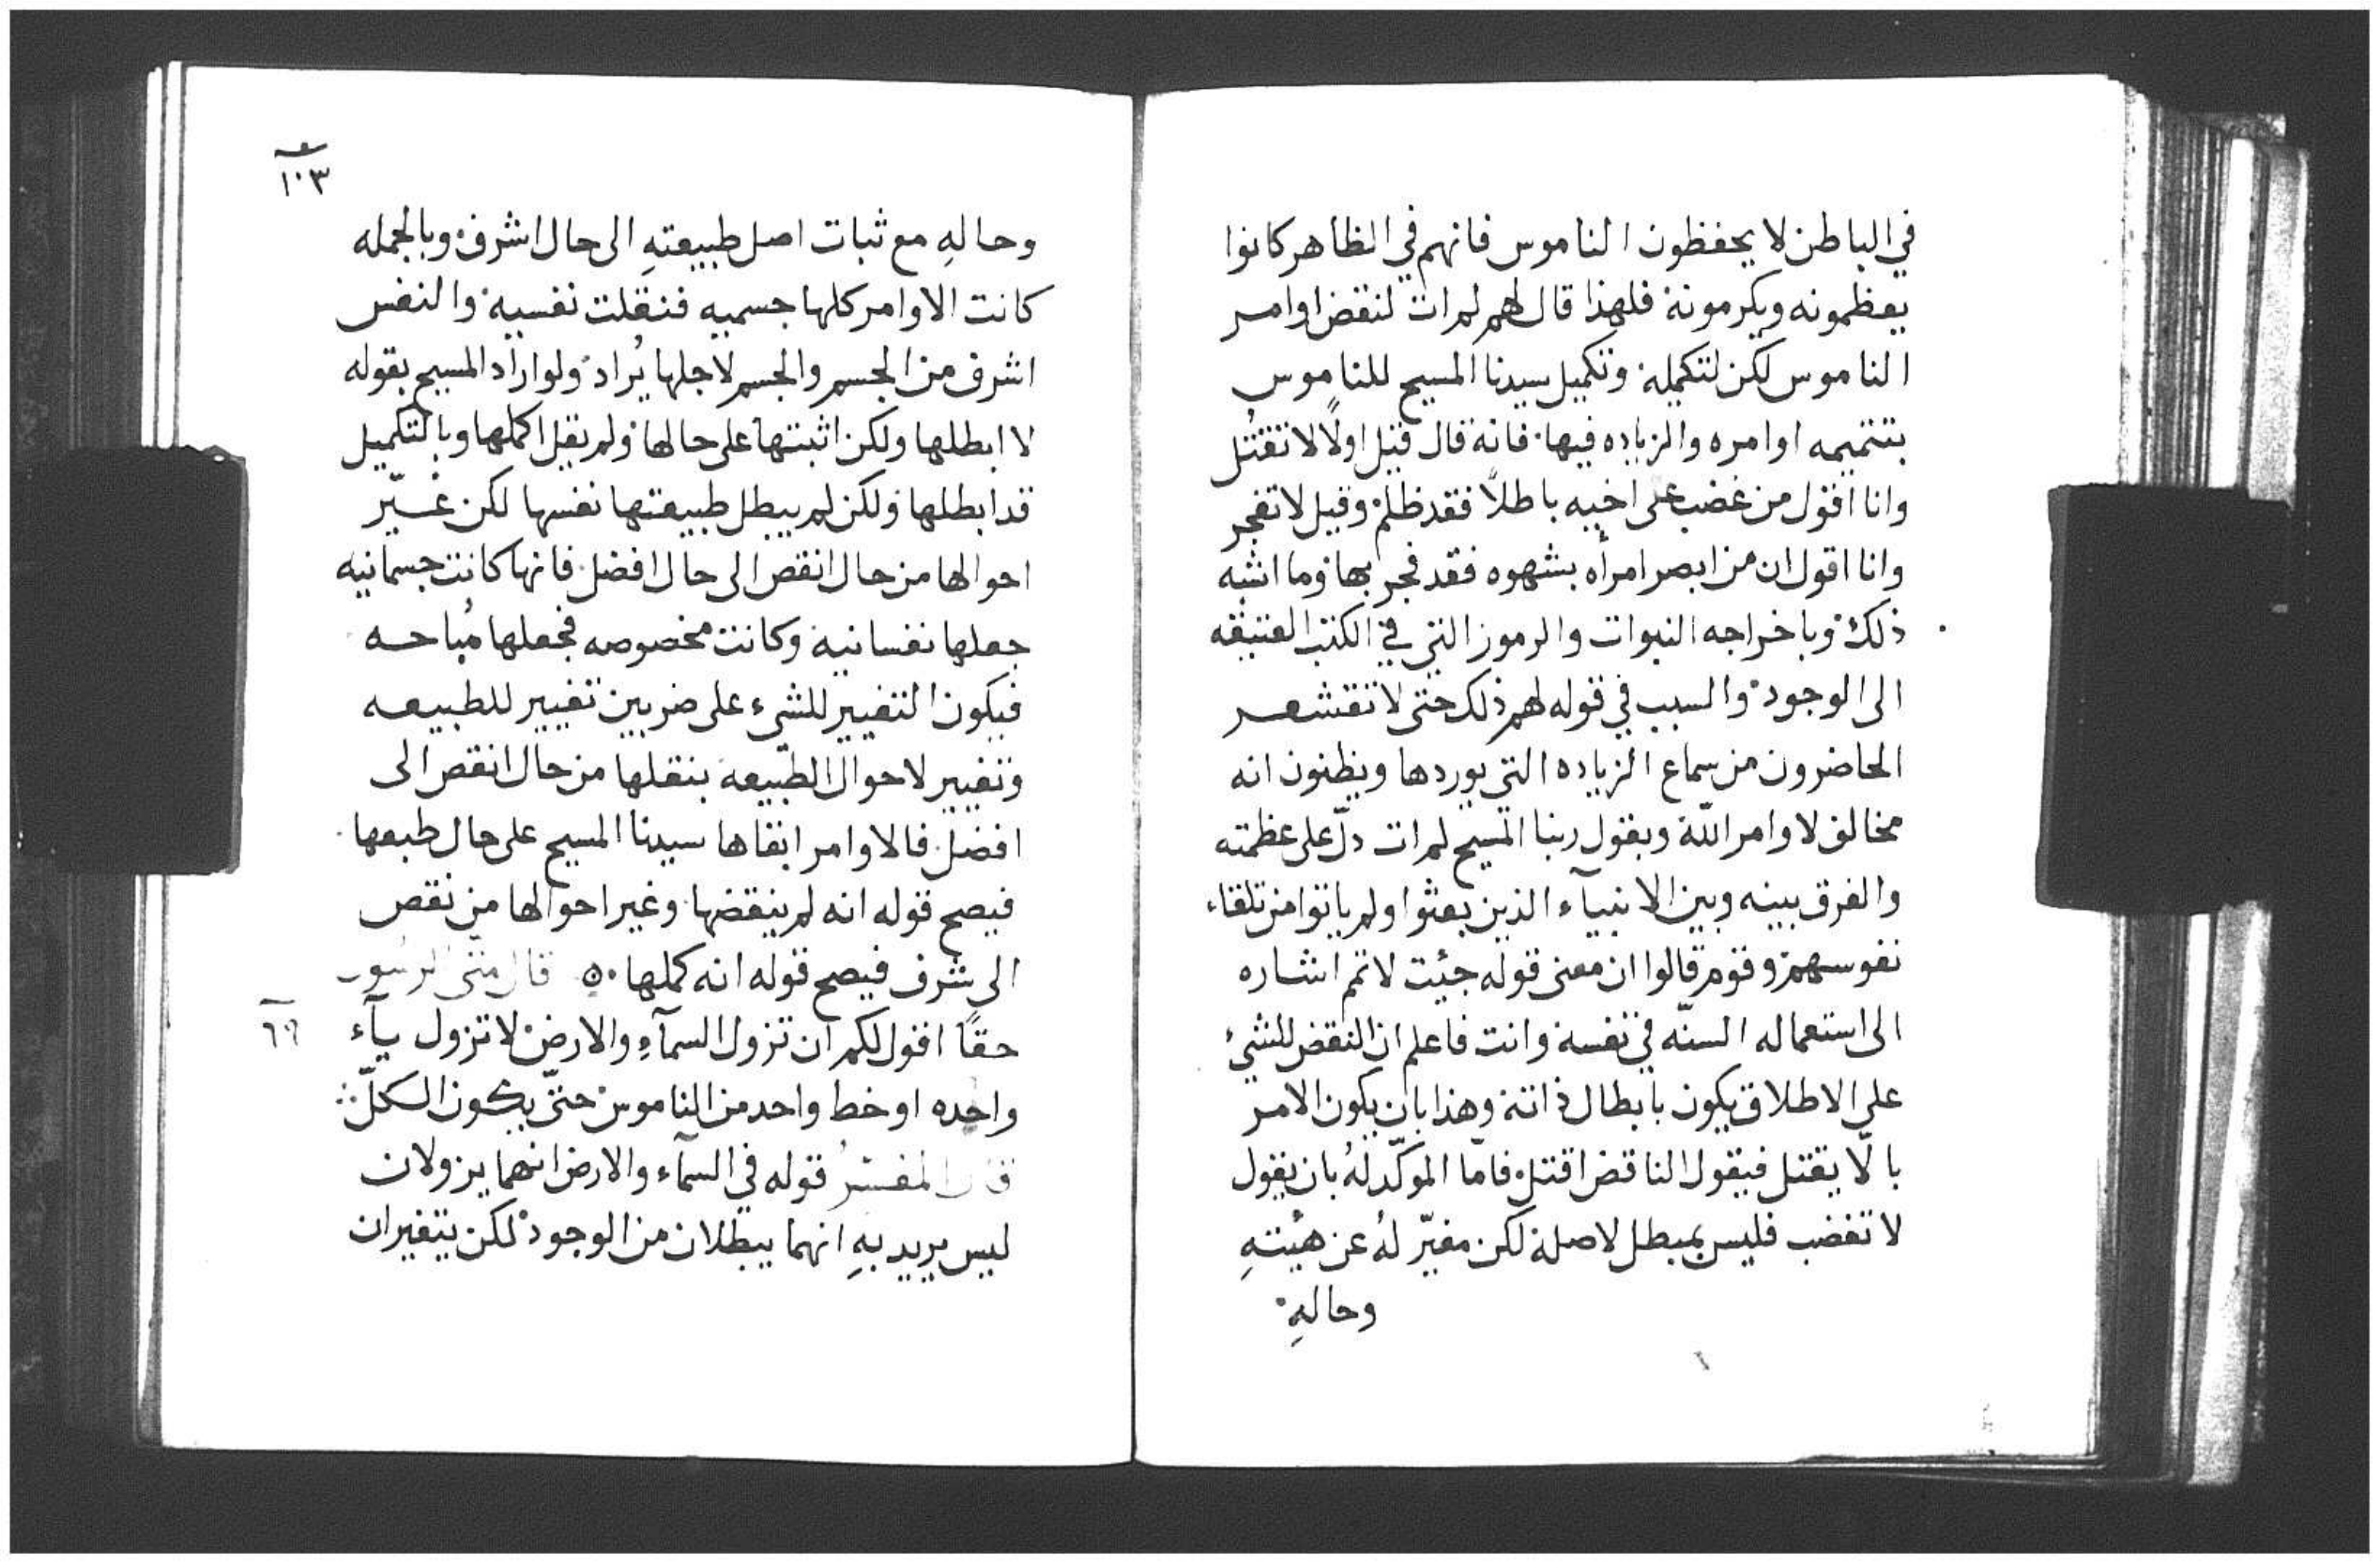 في الباطن لا يحفظون الناموس فانهم في الظاهر كانوا
يعظمونه ويكرمونه فلهذا قال لهم لم ات لنقض اوامر
الناموس لكن لتكميله وتكميل سيدنا المسيح للناموس
بتتميمه اوامره والزياده فيها فانه قال قيل اولًا لا تقتُل
وانا اقول من غضب على اخيه باطلًا فقد ظلم وقيل لا تفجر
وانا اقول ان من ابصر امرأه بشهوه فقد فجر بها وما اشبه
ذلك وباخراجه النبوات والرموز التي في الكتب العتيقه
الى الوجود والسبب في قوله لهم ذلك حتى لا تقشعر
الحاضرون من سماع الزياده التي يوردها ويظنون انه
مخالف لاوامر اللّه وبقول ربنا المسيح لم ات دلّ على عظمته
والفرق بينه وبين الانبيآء الذين بعثوا ولم ياتوا من تلقاء
نفوسهم وقوم قالوا ان معنى قوله جئيت لاتمم اشاره
الى استعماله السنّه في نفسه وانت فاعلم ان النقض للشيء
على الاطلاق يكون بابطال ذاته وهذا بان يكون الامر
بالّا يقتل فيقول الناقض اقتل فامّا الموكّد لهُ بان يقول
لا تغضب فليس بمبطل لاصله لكن مغيّر لهُ عن هيئتهِ
وحالهِ
١٠٣
وحالهِ مع ثبات اصل طبيعتهِ الى حال اشرف وبالجمله
كانت الاوامر كلها جسميه فنقلت نفسيه والنفس
اشرف من الجسم والجسم لاجلها يُراد ولو اراد المسيح بقوله
لا ابطلها ولكن اثبتها على حالها ولم يقل اكملها وبالتكميل
قد ابطلها ولكن لم يبطل طبيعتها نفسها لكن غيّر
احوالها من حال انقص الى حال افضل فانها كانت جسمانيه
جعلها نفسانيه وكانت مخصوصه فجعلها مُباحه
فيكون التغيير للشيء على ضربين تغيير للطبيعه
وتغيير لاحوال الطبيعه بنقلها من حال انقص الى
افضل فالاوامر ابقاها سيدنا المسيح على حال طبعها
فيصح قوله انه لم ينقضها وغير احوالها من نقص
الى شرف فيصح قوله انه كملها قال متى الرسول
حقًا اقول لكم ان تزول السمآءِ والارض لا تزول يآء
واحده او خط واحد من الناموس حتّى يكون الكلّ
قال المفسّر قوله في السمآء والارض انهما يزولان
ليس يريد بهِ انهما يبطلان من الوجود لكن يتغيران